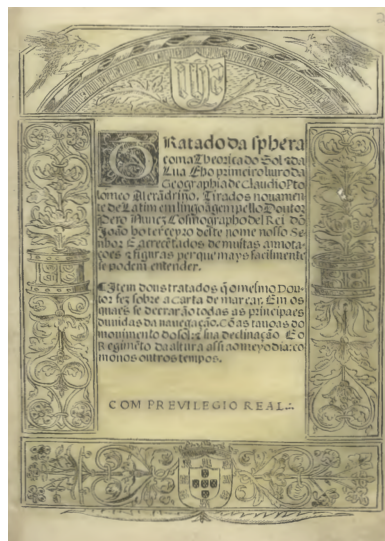 yhs
Tratado da sphera
com a Theorica do Sol ⁊ da
Lua E ho primeiro liuro da
Geographia de Claudio Pto
lomeo Alexãdrino. Tirados nouamen
te de Latim em lingoagem pello Doutor
Pero Nunez Cosmographo del Rey dõ
João ho terceyro deste nome nosso Se-
nhor E acrecẽtados de muitas annota-
ções ⁊ figuras per que mays facilmente
se podem entender.
¶ Item dous tratados q̃ o mesmo Dou-
tor fez sobre a Carta de marear. Em os
quaes se decrarão todas as prĩcipaes
duuidas da nauegação. Cõ as tauoas do
mouimento do sol: ⁊ sua declinação. E o
Regimẽto da altura assi ao meyo dia: co
mo nos outros tempos.
COM PREVILEGIO REAL.